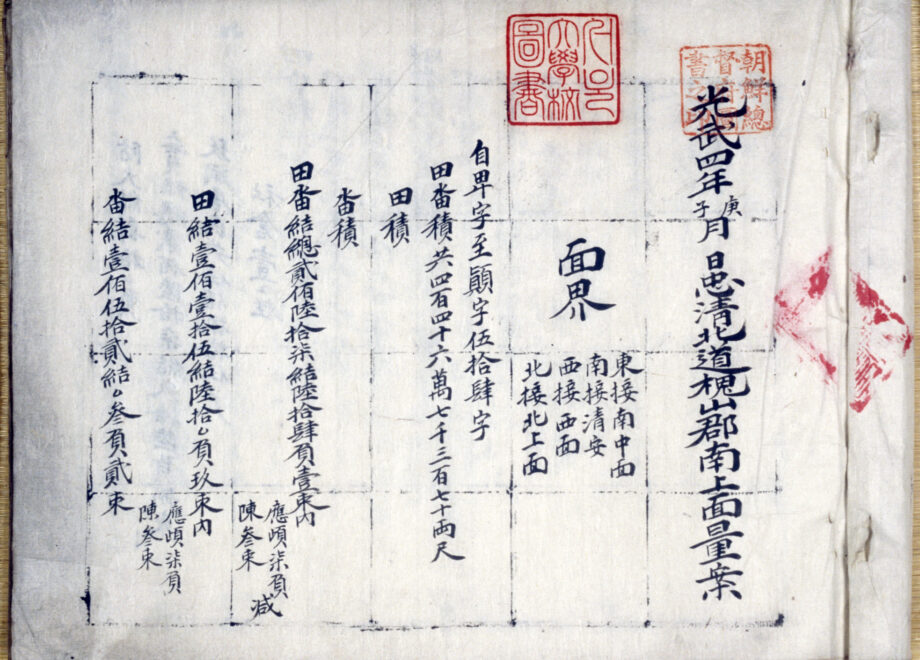 朝鮮總督府圖書之印
光武四年庚子月 日忠清北道槐山郡南上面量案
서울大學校圖書
面界
東接南中面
南接清安
西接西面
北接北上面
自卑字至顚字伍拾肆字
田畓積共四百四十六萬七千三百七十兩尺
田積
畓積
田畓結總貳佰陸拾柒結陸拾肆負壹束內
應頉柒負 減
陳叄束
田結壹佰壹拾伍結陸拾〇負玖束內
應頉柒負
陳叄束
畓結壹佰伍拾貳結〇叄負貳束